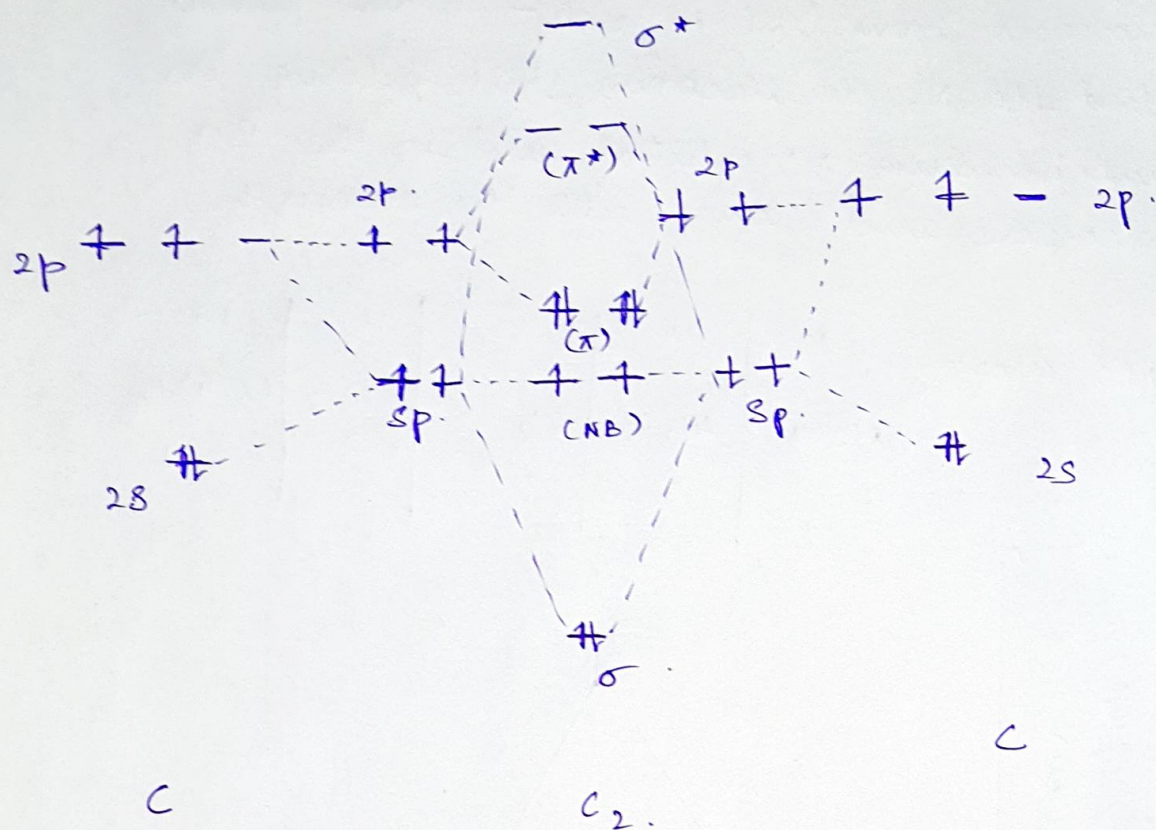 σ*
(π*)
2p
2p.
2p.
2p
(π)
sp.
(NB)
sp.
2s
2s
σ
C
C
C2.